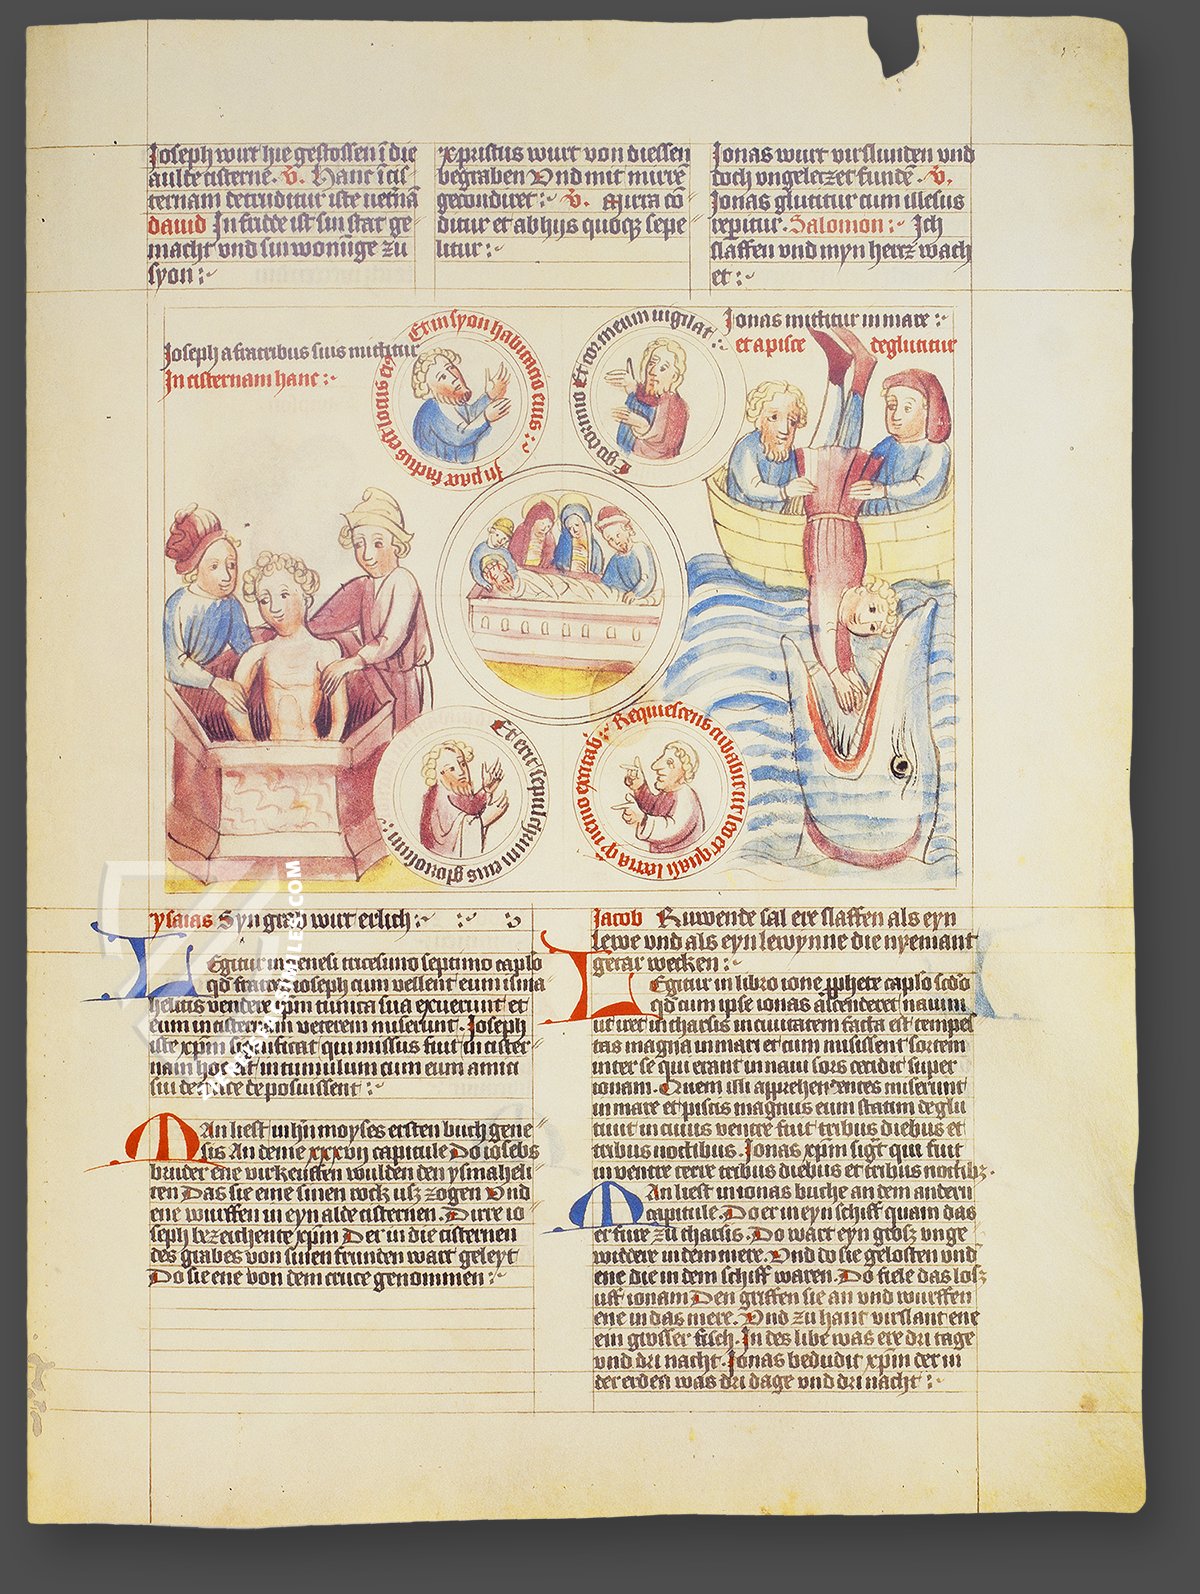 Joseph wurt hie gestossen ī die
aulte cisternē. v̄. Hanc ī cis
ternam detruditur iste
dauid In fridde ist sin stat ge
macht vnd sin wonūge zu
syon :~
xpristus wurt von diessen
begraben Vnd mit mirrē
gecondiret :~ v̄. Mirra cō
ditur et ab hijs quoqꝫ sepe
litur :~
Jonas wurt virslunden vnd
doch vngeleczet fundē. v̄.
Jonas glutitur tum illesus
reperitur. Salomon :~ Ich
slaffen vnd myn hercz wach
et :~
Joseph a fratribus suis mittitur
In cisternam hanc :~
Et in syon habitacio eius :~
In pace factus est locus eis
Ego dormio Et cor meum uigilat :~
Jonas mittitur in mare :~
et a pisce deglutitur
Et erit sepulchrum eius gloriosum :
Requiescens cubabit ut leo et quasi leena qͥ nemo excitab :
ysaias Syn grab wirt erlich :~ :~ :~
Legitur in genesi tricesimo septimo caplo
qd fratres ioseph cum vellent eum isma
helitis vendere xpm tunica sua exuerunt et
eum in cisternam veterem miserunt. Joseph
iste xpm significat qui missus fuit in cister
nam hoc est in tumulum cum eum amici
sui de cruce deposuissent :~
Man liest in hrn moyses ersten buch gene
sis An deme xxxvij capitule Do iosebs
bruder ene virkeuffen wulden den ysmaheli
ten Das sie eme sinen rock usz zogen Vnd
ene wurffen in eyn alde cisternen. Dirre io
seph bezeichente xpm Der in die cisternen
des grabes von sinen frunden wart geleyt
Do sie ene von dem cruce genommen :~
Jacob Ruwende sal ere slaffen als eyn
lewe vnd als eyn lewynne die nyemant
getar wecken :~
Legitur in libro ione pphete caplo scdo
qd cum ipse ionas ascenderet nauim
ut iret in tharsis in ciuitatem facta est tempes
tas magna in mari et cum misissent sortem
inter se qui erant in naui sors cecidit super
ionam. Quem illi apprehendentes miserunt
in mare et piscis magnus eum statim deglu
tiuit in cuius ventre fuit tribus diebus et
tribus noctibus. Jonas xpm sigt qui fuit
in ventre terre tribus diebus et tribus noctibz.
Man liest in ionas buche an dem andern
capitule. Do er in eyn schiff quam das
er fure zu tharsis. Do wart eyn grosz vnge
widdere in dem mere. Vnd do sie gelosten vnd
ene die in dem schiff waren. Do fiele das losz
uff ionam Den griffen sie an vnd wurffen
ene in das mere. Vnd zu hant virslant ene
ein grosser fisch. In des libe was ere dri tage
vnd dri nacht. Jonas bedudit xpm der in
der erden was dri dage vnd dri nacht :~